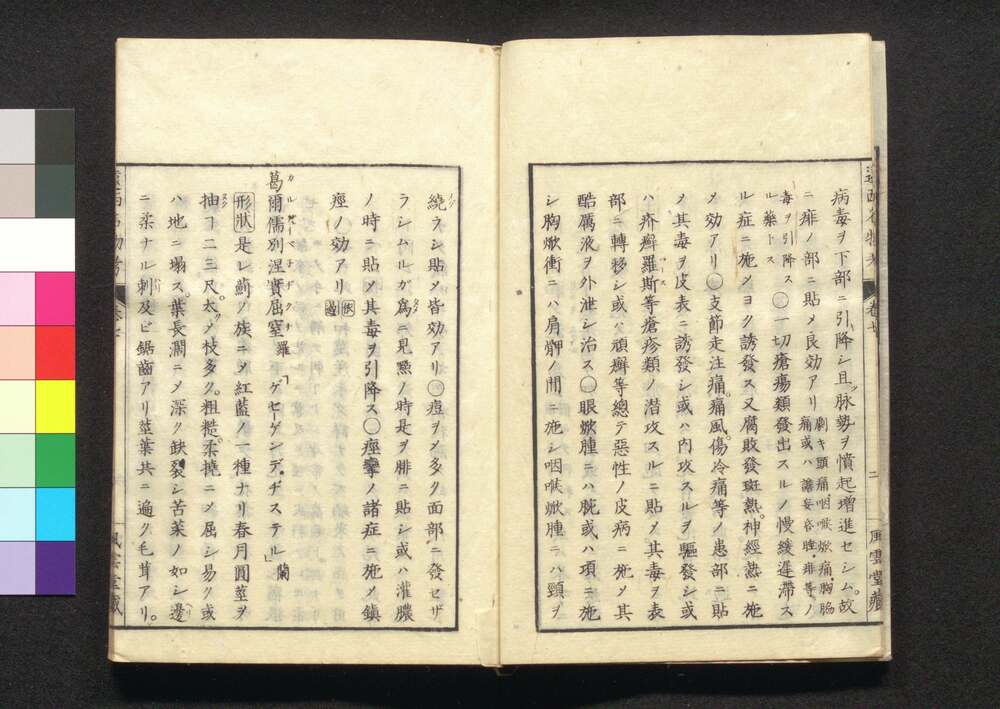 病毒ヲ下部ニ引降シ且ツ脉勢ヲ憤起増進セシム。故
ニ腓ノ部ニ貼メ良効アリ 劇キ頭痛咽喉焮痛胸脇痛或ハ譫妄昏睡ノ
毒ヲ引降ス 〇一切瘡瘍類發出スルノ慢緩遅滞ス
ル藥トス
ル症ニ施シヨク誘發ス又腐敗發斑熱。神經熱ニ施
メ効アリ〇支節走注痛。痛風。傷冷痛等ノ患部ニ貼
メ其毒ヲ皮表ニ誘發シ或ハ内攻スルヲ驅發シ或
ハ疥癬羅斯等瘡疹類ノ潜攻スルニ貼メ其毒ヲ表
部ニ轉移シ或ハ頑癬等總テ惡性ノ皮病ニ施メ其
酷厲液ヲ外泄シ治ス〇眼焮腫ニハ腕或ハ項ニ施
シ胸焮衝ニハ肩胛ノ間ニ施シ咽喉焮腫ニハ頸ヲ
遠西名物考 巻廿 二 風雲堂藏
繞ラシ貼メ皆効アリ〇痘ヲメ多ク面部ニ發セザ
ラシムルガ為ニ見㸃ノ時是ヲ腓ニ貼シ或ハ灌膿
ノ時ニ貼メ其毒ヲ引降ス〇痙攣ノ諸症ニ施メ鎮
痙ノ効アリ
葛爾儒別涅實屈窒 羅 「ゲセーゲンデ。ヂステル」蘭
カルドベネヂクチ
形狀 是レ薊ノ族ニメ紅藍ノ一種ナリ春月圓莖ヲ
抽丁二三尺。太メ枝多ク。粗糙。柔撓ニメ屈シ易ク或
ハ地ニ塌ス。葉長濶ニメ深ク缺裂シ苦菜ノ如シ邊
ニ柔ナル刺及ビ鋸齒アリ莖葉共ニ遍ク毛茸アリ。
風雲堂藏